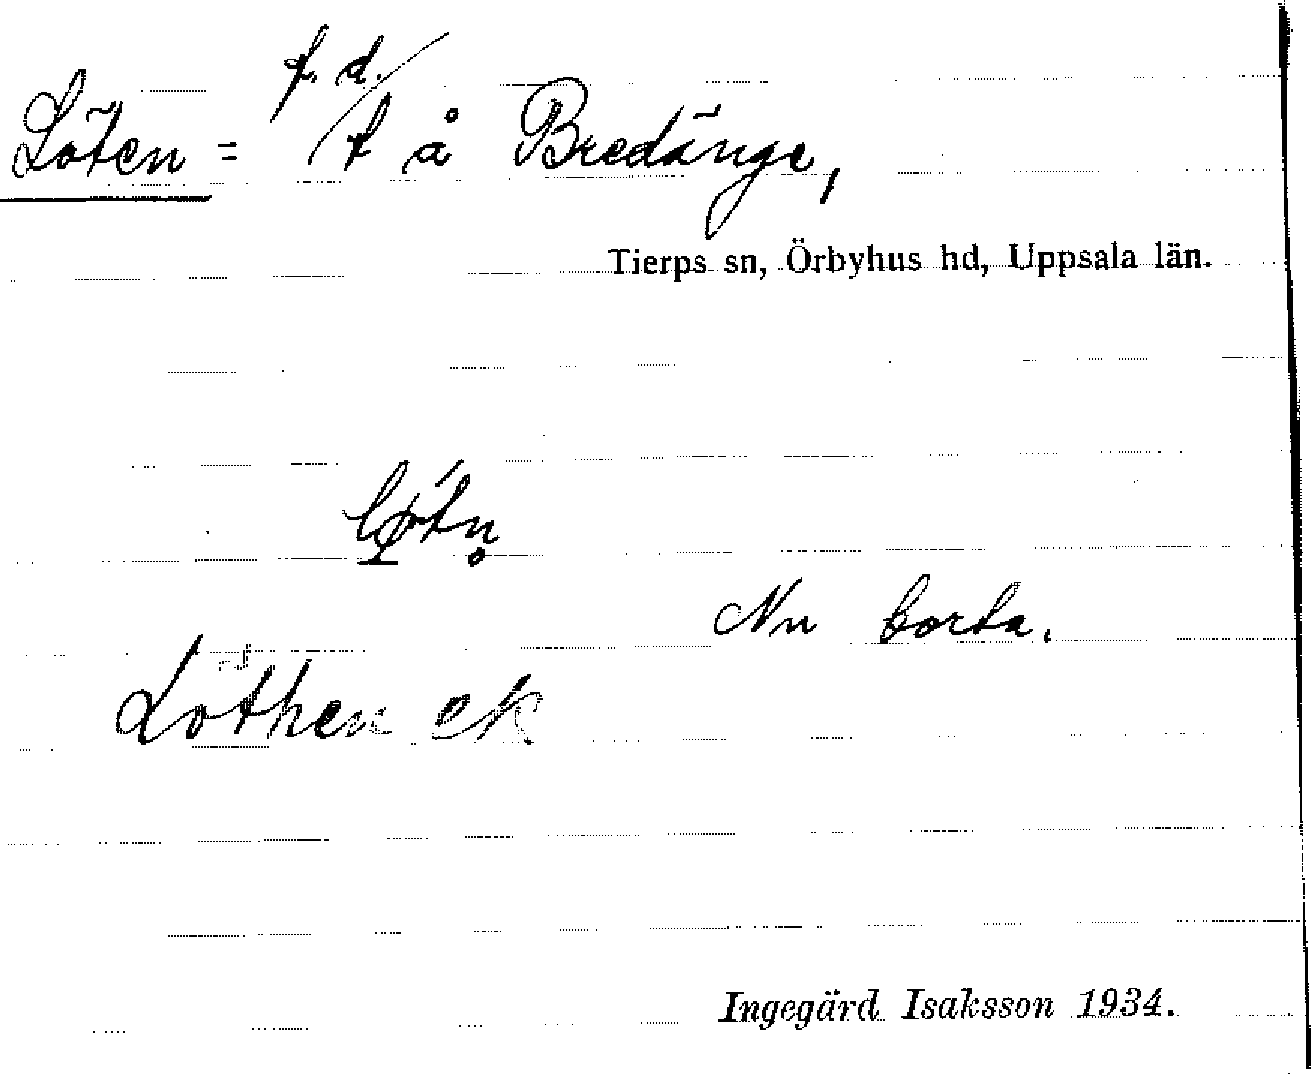 Löten = f.d. t å Bredänge,
Tierps sn, Örbyhus hd, Uppsala län.
Nu borta.
Löthen ek
Ingegärd Isaksson 1934.